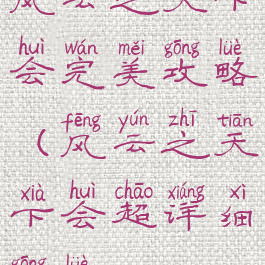 风云之天下
huì wán měi gōng lüè
会完美攻略
fēng yún zhī tiān
（风云之天
xià huì chāo xiáng xì
下会超详细
gōng lüè